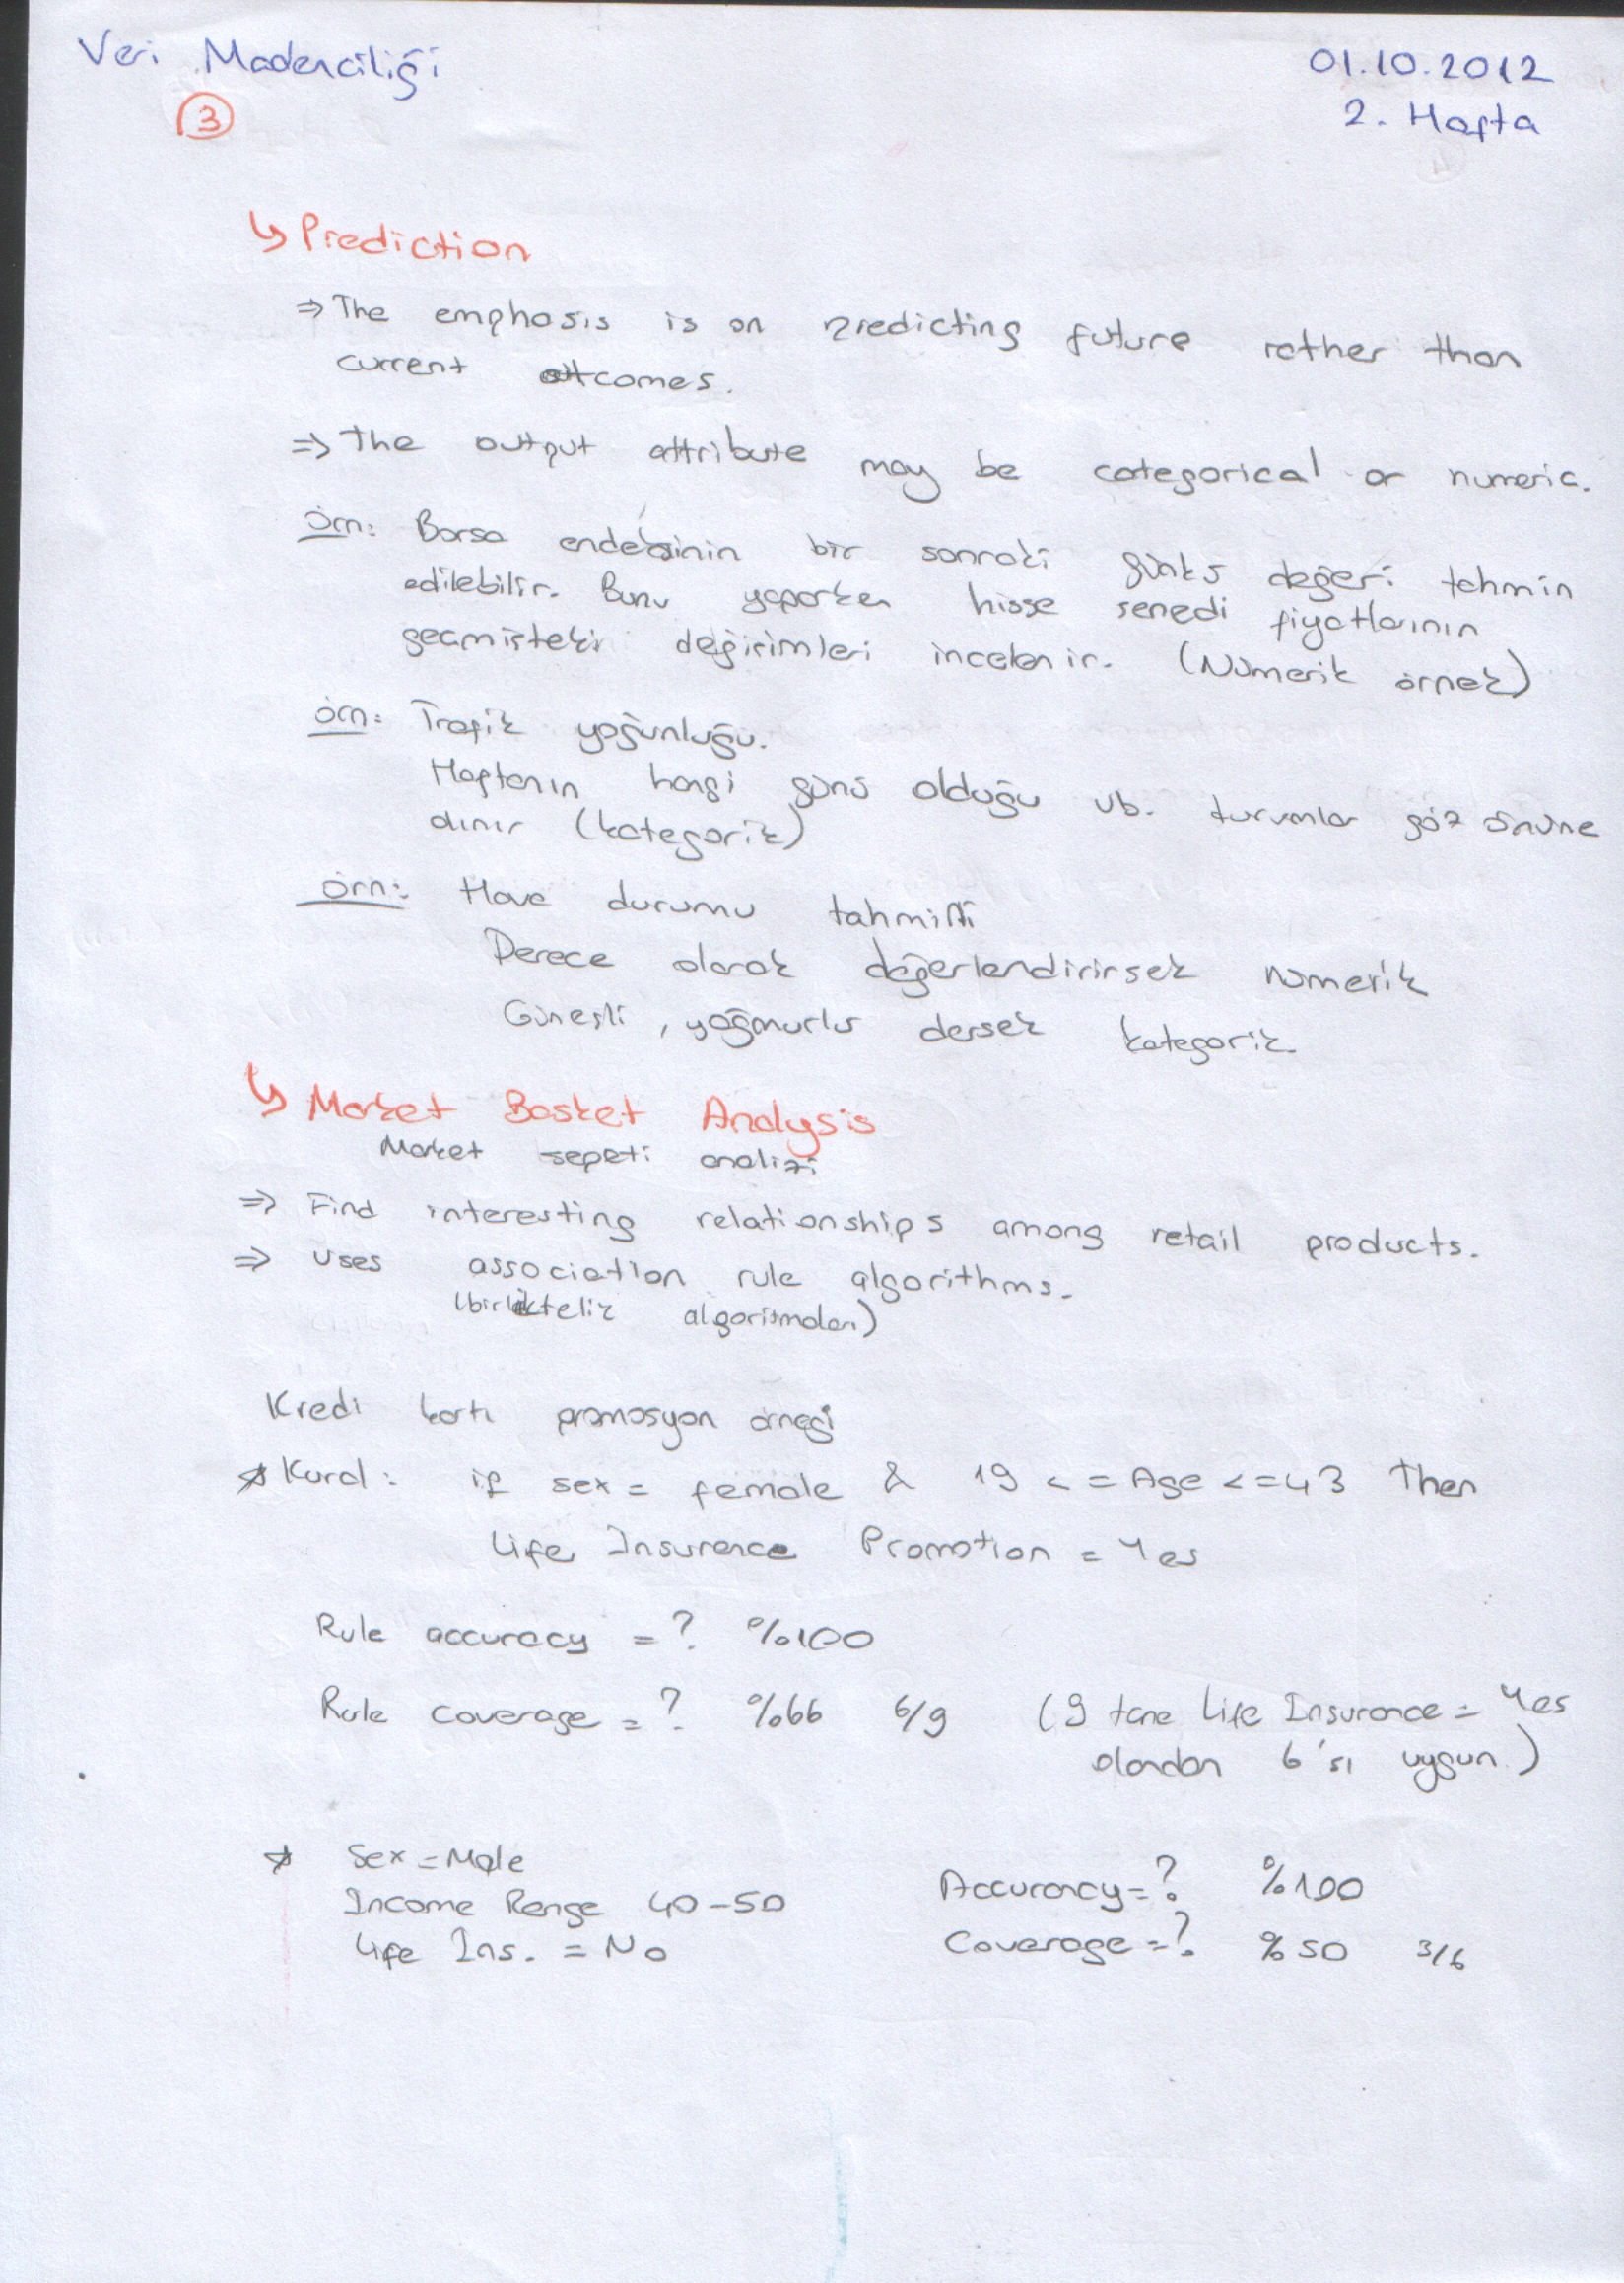 Veri Madenciliği
01.10.2012
③
2. Hafta
↳ Prediction
⇒ The emphasis is on predicting future rather than
current outcomes.
⇒ The output attribute may be categorical or numeric.
örn: Borsa endeksinin bir sonraki günkü değeri tahmin
edilebilir. Bunu yaparken hisse senedi fiyatlarının
geçmişteki değişimleri incelenir. (Nümerik örnek)
örn: Trafik yoğunluğu.
Haftanın hangi günü olduğu vb. durumlar göz önüne
alınır (kategorik)
örn: Hava durumu tahmini
Derece olarak değerlendirirsek nümerik
Güneşli, yağmurlu dersek kategorik
↳ Market Basket Analysis
Market sepeti analizi
⇒ Find interesting relationships among retail products.
⇒ Uses association rule algorithms.
(birliktelik algoritmaları)
Kredi kartı promosyon örneği
* Kural: if sex = female & 19 <= Age <= 43 Then
Life Insurance Promotion = Yes
Rule accuracy = ? %100
Rule coverage = ? %66 6/9 (9 tane Life Insurance = Yes
olandan 6'sı uygun.)
* Sex = Male
Income Range 40-50
Life Ins. = No
Accuracy = ? %100
Coverage = ? %50 3/6